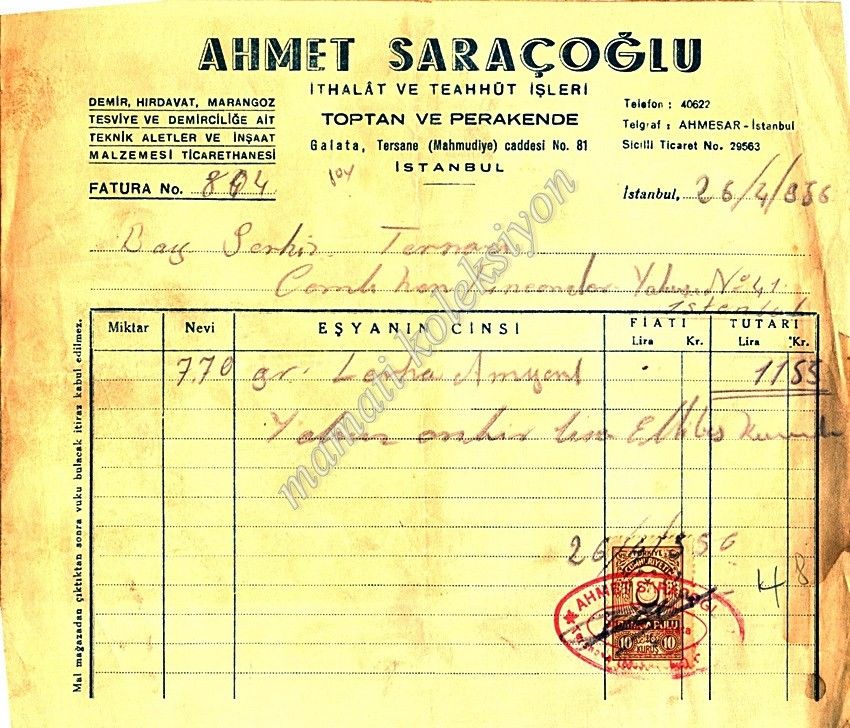 AHMET SARAÇOĞLU
İTHALÂT VE TEAHHÜT İŞLERİ
TOPTAN VE PERAKENDE
Galata, Tersane (Mahmudiye) caddesi No. 81
İSTANBUL
DEMİR, HIRDAVAT, MARANGOZ
TESVİYE VE DEMİRCİLİĞE AİT
TEKNİK ALETLER VE İNŞAAT
MALZEMESİ TİCARETHANESİ
Telefon : 40622
Telgraf : AHMESAR - İstanbul
Sicilli Ticaret No. 29563
FATURA No. 804
804
İstanbul, 26/4/956
Bay
No 41
İstanbul
Miktar Nevi EŞYANIN CİNSİ FİATI TUTARI
Lira Kr. Lira Kr.
7.70 gr. Levha Amyant 11 55
Yalnız onbir lira Ellibeş Kuruştur
26/4/956
48
TÜRKİYE
CUMHURİYETİ
DAMGA PULU
10 KURUŞ 10
AHMET SARAÇOĞLU
Mal mağazadan çıktıktan sonra vuku bulacak itiraz kabul edilmez.
maman koleksiyon